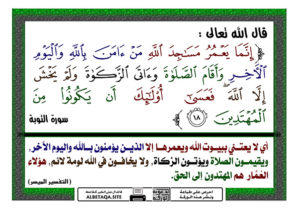 قال الله تعالى :
﴿ إِنَّمَا يَعْمُرُ مَسَٰجِدَ ٱللَّهِ مَنْ ءَامَنَ بِٱللَّهِ وَٱلْيَوْمِ
ٱلْأٓخِرِ وَأَقَامَ ٱلصَّلَوٰةَ وَءَاتَى ٱلزَّكَوٰةَ وَلَمْ يَخْشَ
إِلَّا ٱللَّهَ ۖ فَعَسَىٰٓ أُو۟لَٰٓئِكَ أَن يَكُونُوا۟ مِنَ
ٱلْمُهْتَدِينَ ١٨ ﴾ سورة التوبة
أي لا يعتني ببيوت الله ويعمرها إلا الذين يؤمنون بالله واليوم الآخر،
ويقيمون الصلاة ويؤتون الزكاة، ولا يخافون في الله لومة لائم، هؤلاء
العُمَّار هم المهتدون إلى الحق.
(التفسير الميسر)
احرص على طباعة
ونشر هذه الورقة
ALBETAQA.SITE